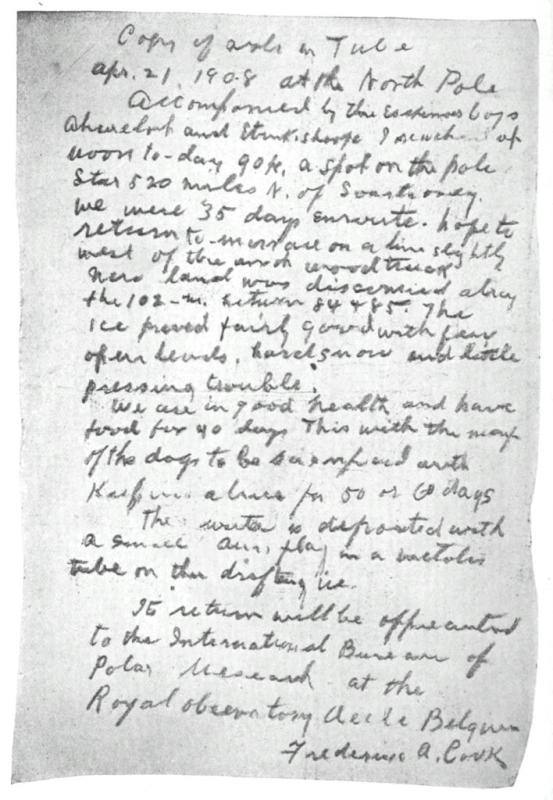 Copy of note in Tube
Apr. 21, 1908 at the North Pole
Accompanied by the Eskimo boys
Ahwelah and Etukishook I reached at
noon to-day 90 N, a spot on the polar
Star 520 miles N. of Svartevoeg.
We were 35 days enroute. hope to
return to-morrow on a line slightly
west of the north ward track
New land was discovered along
the 102-M. between 84 & 85. The
ice proved fairly good with few
open leads, hard snow and little
pressing trouble.
We are in good health and have
food for 40 days This with the meat
of the dogs to be sacrificed will
Keep us alive for 50 or 60 days
The note is deposited with
a small Am. flag in a metallic
tube on the drifting ice.
Its return will be appreciated
to the International Bureau of
Polar Research at the
Royal observatory Uccle Belgium
Frederick A. Cook